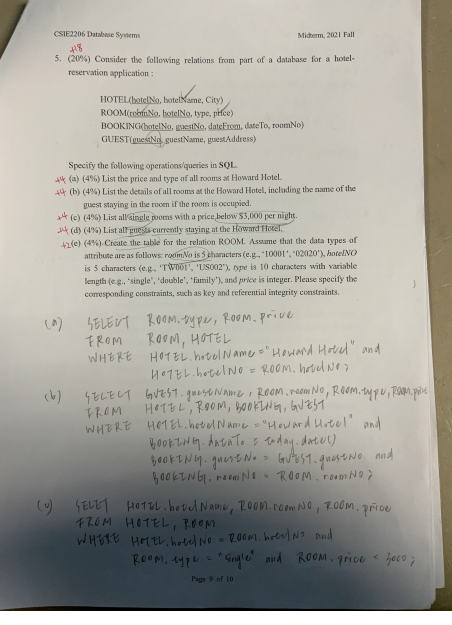 CSIE2206 Database Systems Midterm, 2021 Fall
+18
5. (20%) Consider the following relations from part of a database for a hotel-
reservation application :
HOTEL(hotelNo, hotelName, City)
ROOM(roomNo, hotelNo, type, price)
BOOKING(hotelNo, guestNo, dateFrom, dateTo, roomNo)
GUEST(guestNo, guestName, guestAddress)
Specify the following operations/queries in SQL.
+4 (a) (4%) List the price and type of all rooms at Howard Hotel.
+4 (b) (4%) List the details of all rooms at the Howard Hotel, including the name of the
guest staying in the room if the room is occupied.
+4 (c) (4%) List all single rooms with a price below $3,000 per night.
+4 (d) (4%) List all guests currently staying at the Howard Hotel.
+2 (e) (4%) Create the table for the relation ROOM. Assume that the data types of
attribute are as follows: roomNo is 5 characters (e.g., '10001', '02020'), hotelNO
is 5 characters (e.g., 'TW001', 'US002'), type is 10 characters with variable
length (e.g., 'single', 'double', 'family'), and price is integer. Please specify the
corresponding constraints, such as key and referential integrity constraints.
(a) SELECT ROOM.type, ROOM.price
FROM ROOM, HOTEL
WHERE HOTEL.hotelName = "Howard Hotel" and
HOTEL.hotelNo = ROOM.hotelNo;
(b) SELECT GUEST.guestName, ROOM.roomNO, ROOM.type, ROOM.price
FROM HOTEL, ROOM, BOOKING, GUEST
WHERE HOTEL.hotelName = "Howard Hotel" and
BOOKING.dateTo = today.date()
BOOKING.guestNo = GUEST.guestNo and
BOOKING.roomNo = ROOM.roomNO;
(c) SELET HOTEL.hotelName, ROOM.roomNO, ROOM.price
FROM HOTEL, ROOM
WHERE HOTEL.hotelNO = ROOM.hotelNO and
ROOM.type = "Single" and ROOM.price < 3000;
Page 9 of 10